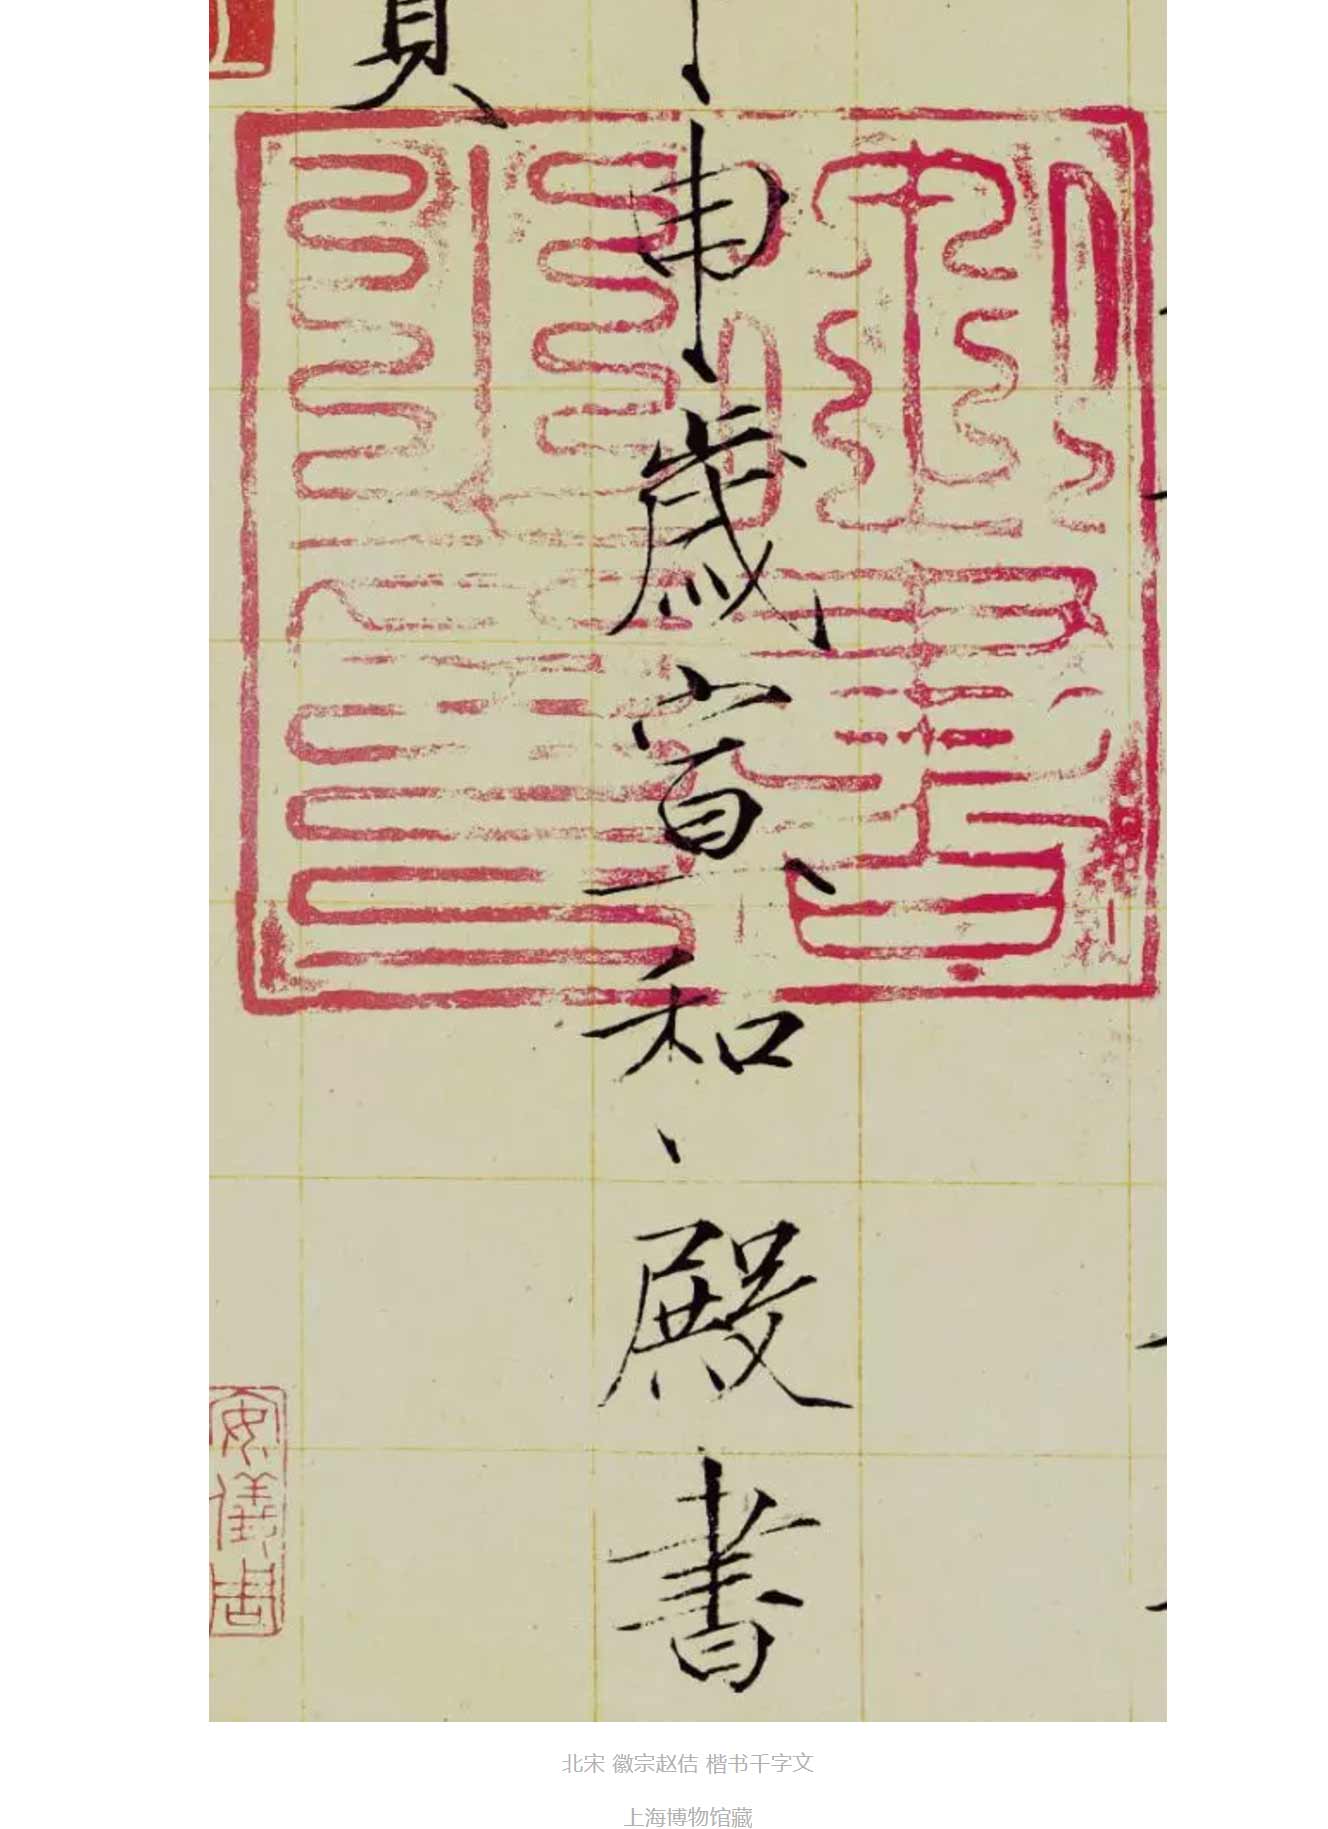 申歲宣和、殿書
安儀周
北宋 徽宗赵佶 楷书千字文
上海博物馆藏